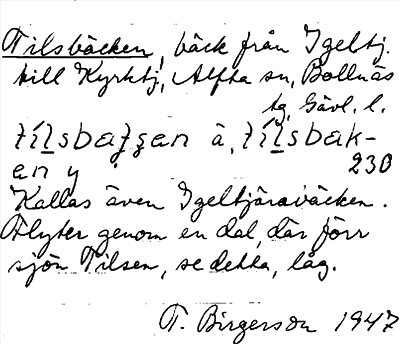 Tilsbäcken, bäck från Igeltj.
till Kyrktj, Alfta sn, Bollnäs
tg, Gävl. l.
tílsbaʈʂɛn ä, tílsbak-
ɛn y 230
Kallas även Igeltjäraväcken.
Flyter genom en dal, där förr
sjön Tilsen, se detta, låg.
T. Birgerson 1947